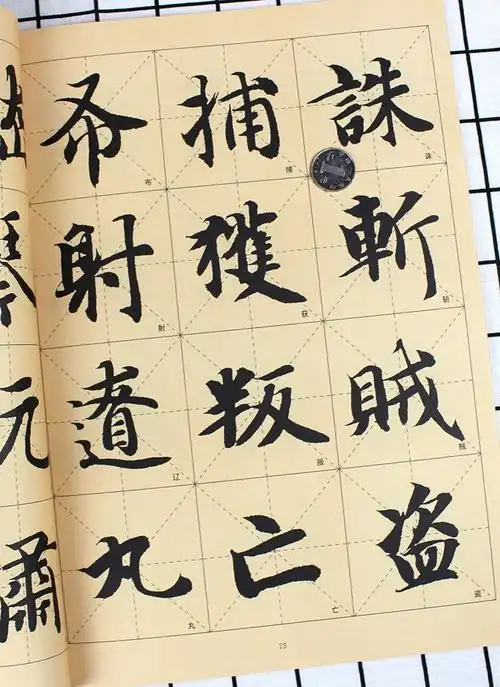 誅斬賊盗
诛斩贼盗
捕獲叛亡
捕获叛亡
布射遼丸
布射辽丸
75